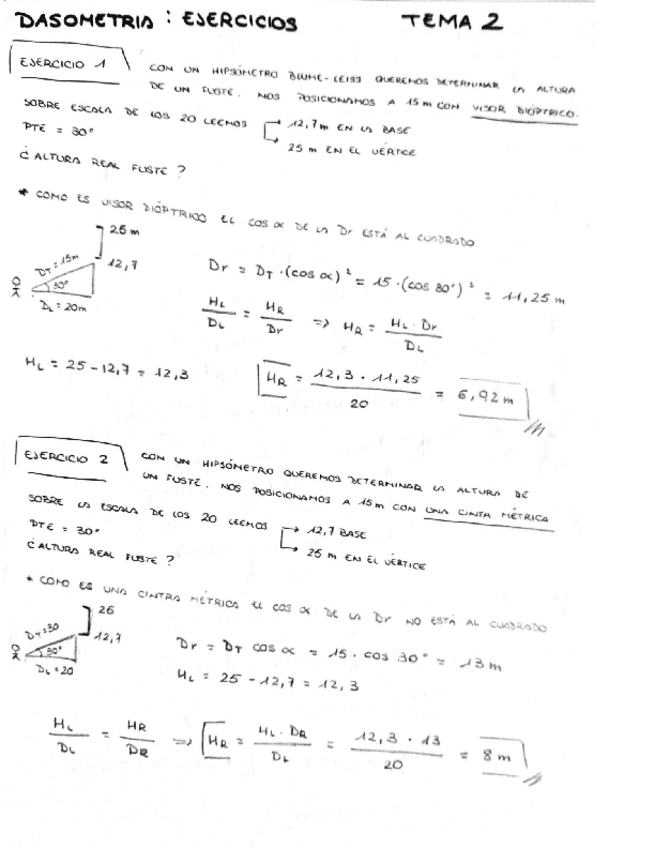 DASOMETRIA : EJERCICIOS TEMA 2
EJERCICIO 1
CON UN HIPSÓMETRO BLUME-LEISS QUEREMOS DETERMINAR LA ALTURA
DE UN FUSTE. NOS POSICIONAMOS A 15m CON VISOR DIÓPTRICO.
SOBRE ESCALA DE LOS 20 LEEMOS → 12,7m EN LA BASE
→ 25 m EN EL VÉRTICE
PTE = 30°
¿ALTURA REAL FUSTE?
* COMO ES VISOR DIÓPTRICO EL COS α DE LA Dr ESTÁ AL CUADRADO
25 m
12,7
DT = 15m
30°
DL = 20m
Dr = DT · (cos α)² = 15 · (cos 30°)² = 11,25 m
HL / DL = HR / Dr => HR = HL · Dr / DL
HL = 25 - 12,7 = 12,3
HR = 12,3 · 11,25 / 20 = 6,92 m
EJERCICIO 2
CON UN HIPSÓMETRO QUEREMOS DETERMINAR LA ALTURA DE
UN FUSTE. NOS POSICIONAMOS A 15m CON UNA CINTA MÉTRICA
SOBRE LA ESCALA DE LOS 20 LEEMOS → 12,7 BASE
→ 25 m EN EL VÉRTICE
PTE = 30°
¿ALTURA REAL FUSTE?
* COMO ES UNA CINTRA MÉTRICA EL COS α DE LA Dr NO ESTÁ AL CUADRADO
25
12,7
DT=30
30°
DL=20
Dr = DT cos α = 15 · cos 30° = 13 m
HL = 25 - 12,7 = 12,3
HL / DL = HR / DR => HR = HL · DR / DL = 12,3 · 13 / 20 = 8 m